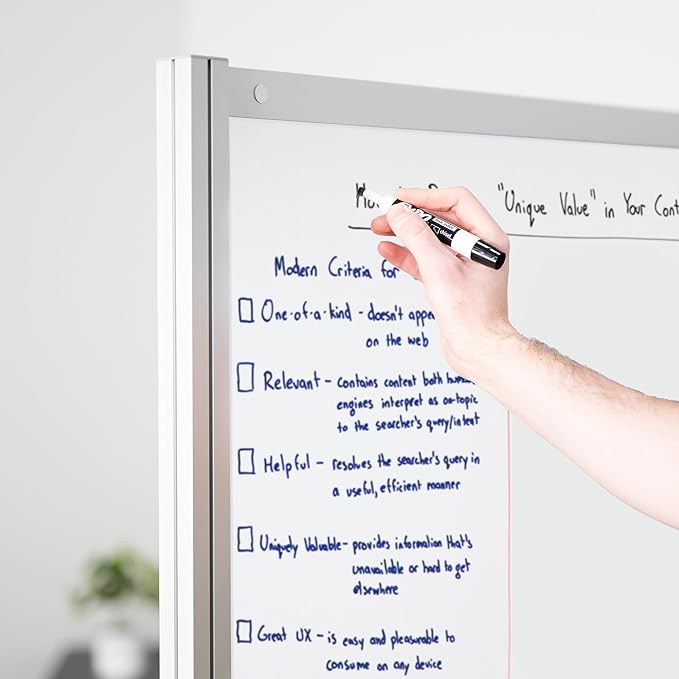 "Unique Value" in Your Cont
Modern Criteria for
One-of-a-kind - doesn't appe
on the web
Relevant - contains content both hum
engines interpret as on-topic
to the searcher's query/intent
Helpful - resolves the searcher's query in
a useful, efficient manner
Uniquely Valuable - provides information that's
unavailable or hard to get
elsewhere
Great UX - is easy and pleasurable to
consume on any device